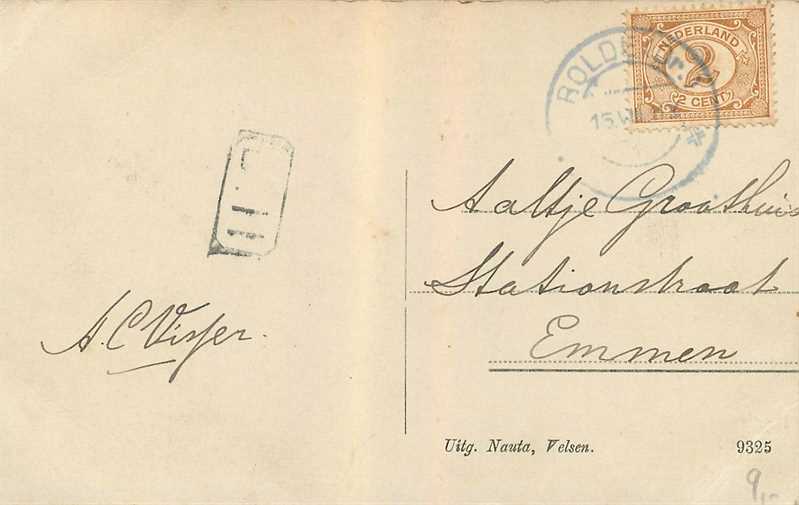 NEDERLAND
2
2 CENT
ROLDE
15
A.C. Visser.
Aaltje Groothuis
Stationstraat
Emmen
Uitg. Nauta, Velsen.
9325
9,-